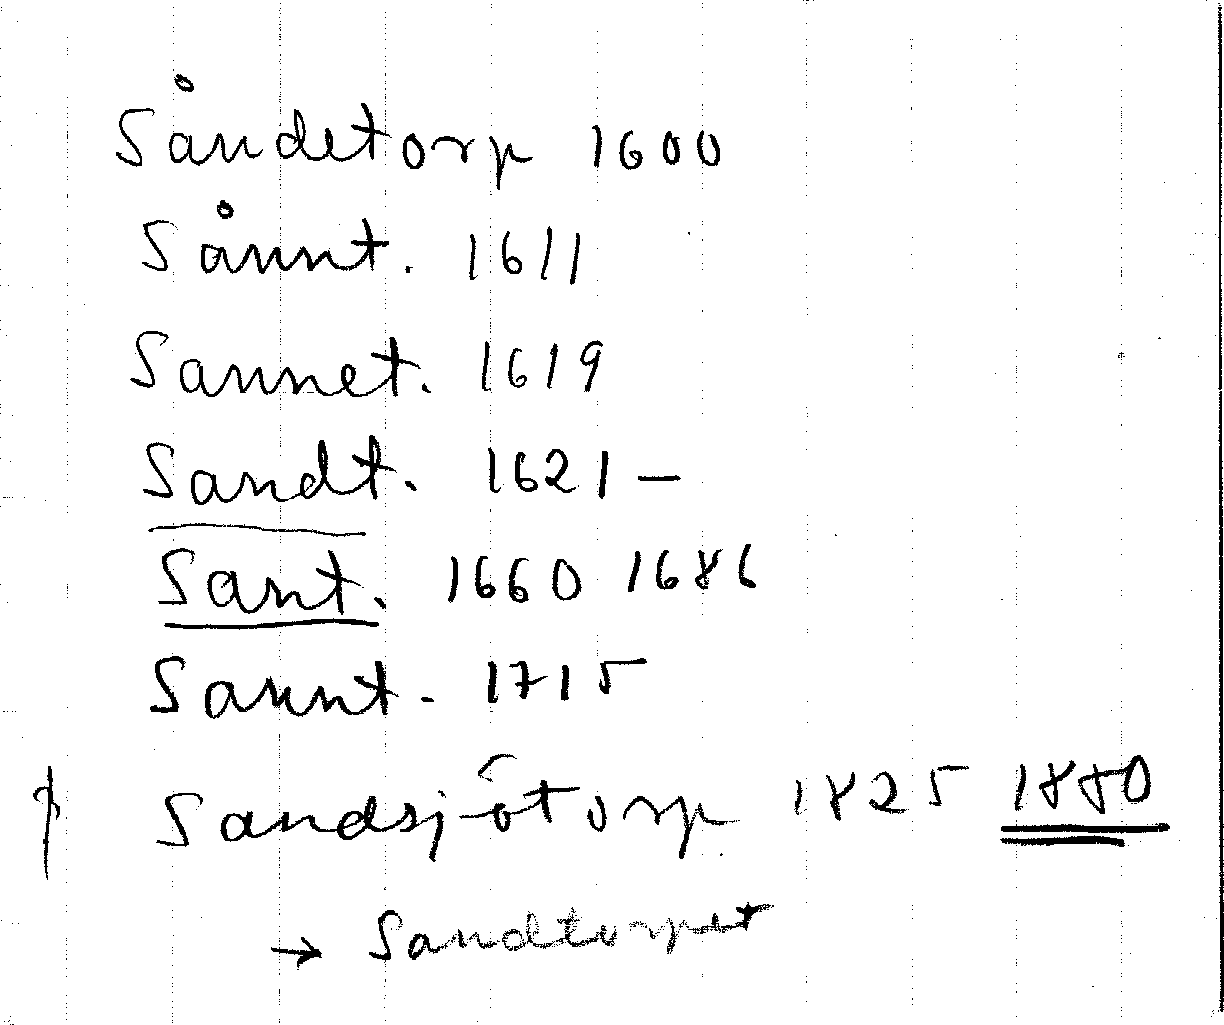 Såndetorp 1600
Sånnt. 1611
Sannet. 1619
Sandt. 1621 —
Sant. 1660 1686
Sannt. 1715
Sandsjötorp 1825 1880
→ Sandtorpet